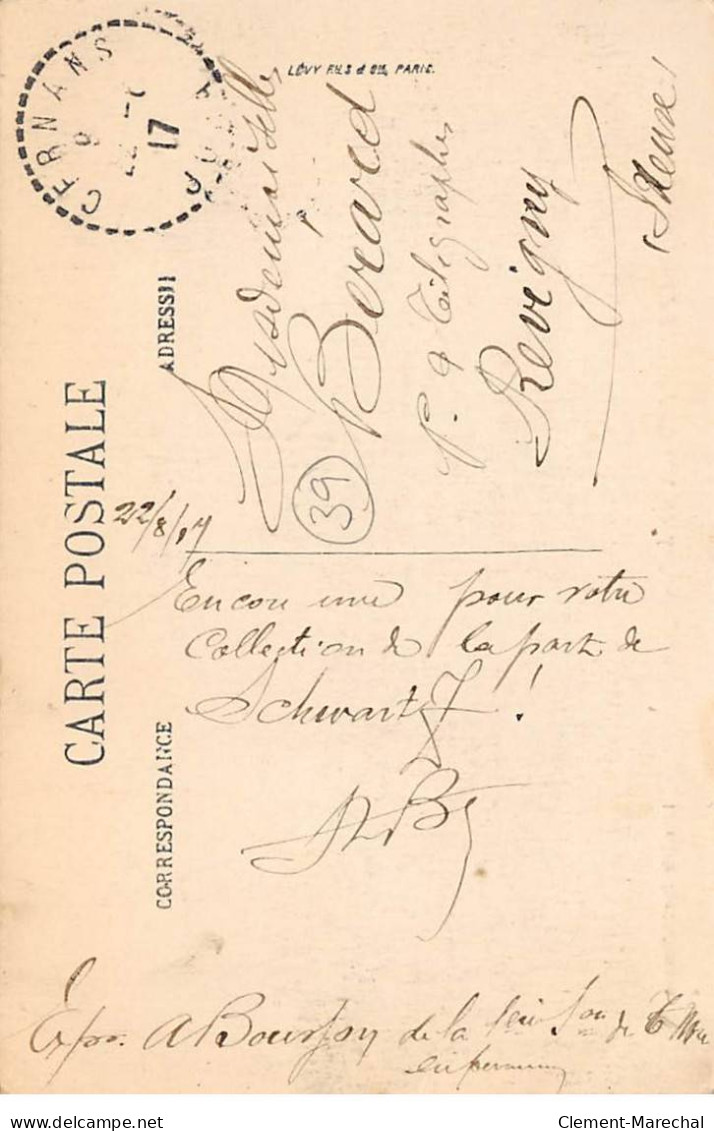 CARTE POSTALE
CORRESPONDANCE
ADRESSE
LÉVY FILS & Cie, PARIS.
CERNANS
17
JURA
22/8/17
Encore une pour votre
Collection de la part de
Schwartz !
Mademoiselle
Bérard
P. & Télégraphes
Revigny
(Meuse)
39
Exp. A Bourjon de la
de
en
Clement-Marechal